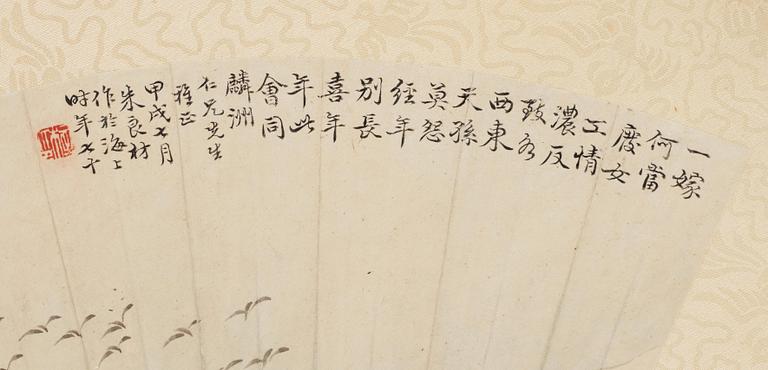 一嫁
何當
廢女
工情
濃反
致各
西東
天孫
莫怨
經年
別長
喜年
年此
會同
麟洲
仁兄先生
雅正
甲戌七月
朱良材
作於海上
時年七十